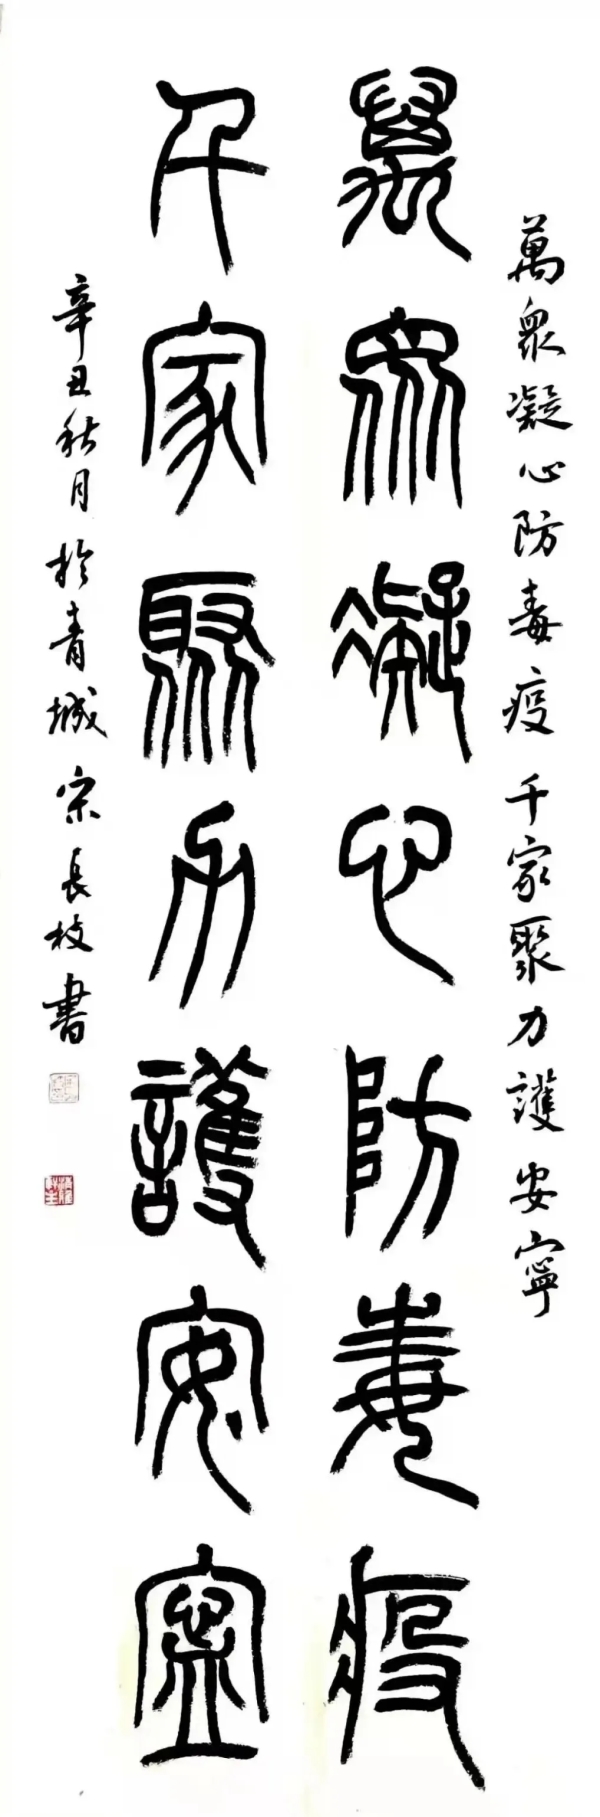 萬眾凝心防毒疫千家聚力護安寧
萬眾凝心防毒疫
千家聚力護安寧
辛丑秋月於青城宗長枝書